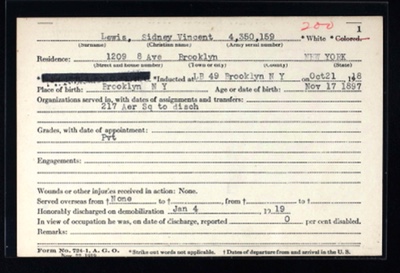 200 1
Lewis, Sidney Vincent 4,350,159 *White *Colored.
(Surname) (Christian name) (Army serial number)
Residence: 1209 8 Ave Brooklyn NEW YORK
(Street and house number) (Town or city) (County) (State)
*Inducted at LB 49 Brooklyn N Y on Oct 21, 1918
Place of birth: Brooklyn N Y Age or date of birth: Nov 17 1897
Organizations served in, with dates of assignments and transfers:
217 Aer Sq to disch
Grades, with date of appointment:
Pvt
Engagements:
Wounds or other injuries received in action: None.
Served overseas from † None to † , from † to †
Honorably discharged on demobilization Jan 4 , 1919
In view of occupation he was, on date of discharge, reported 0 per cent disabled.
Remarks:
Form No. 724-1, A. G. O. *Strike out words not applicable. † Dates of departure from and arrival in the U. S.